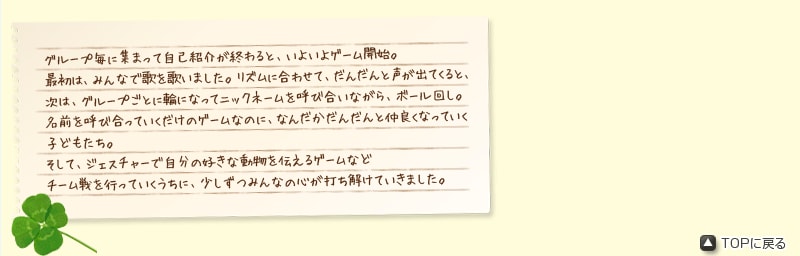 グループ毎に集まって自己紹介が終わると、いよいよゲーム開始。
最初は、みんなで歌を歌いました。リズムに合わせて、だんだんと声が出てくると、
次は、グループごとに輪になってニックネームを呼び合いながら、ボール回し。
名前を呼び合っていくだけのゲームなのに、なんだかだんだんと仲良くなっていく
子どもたち。
そして、ジェスチャーで自分の好きな動物を伝えるゲームなど
チーム戦を行っていくうちに、少しずつみんなの心が打ち解けていきました。
TOPに戻る